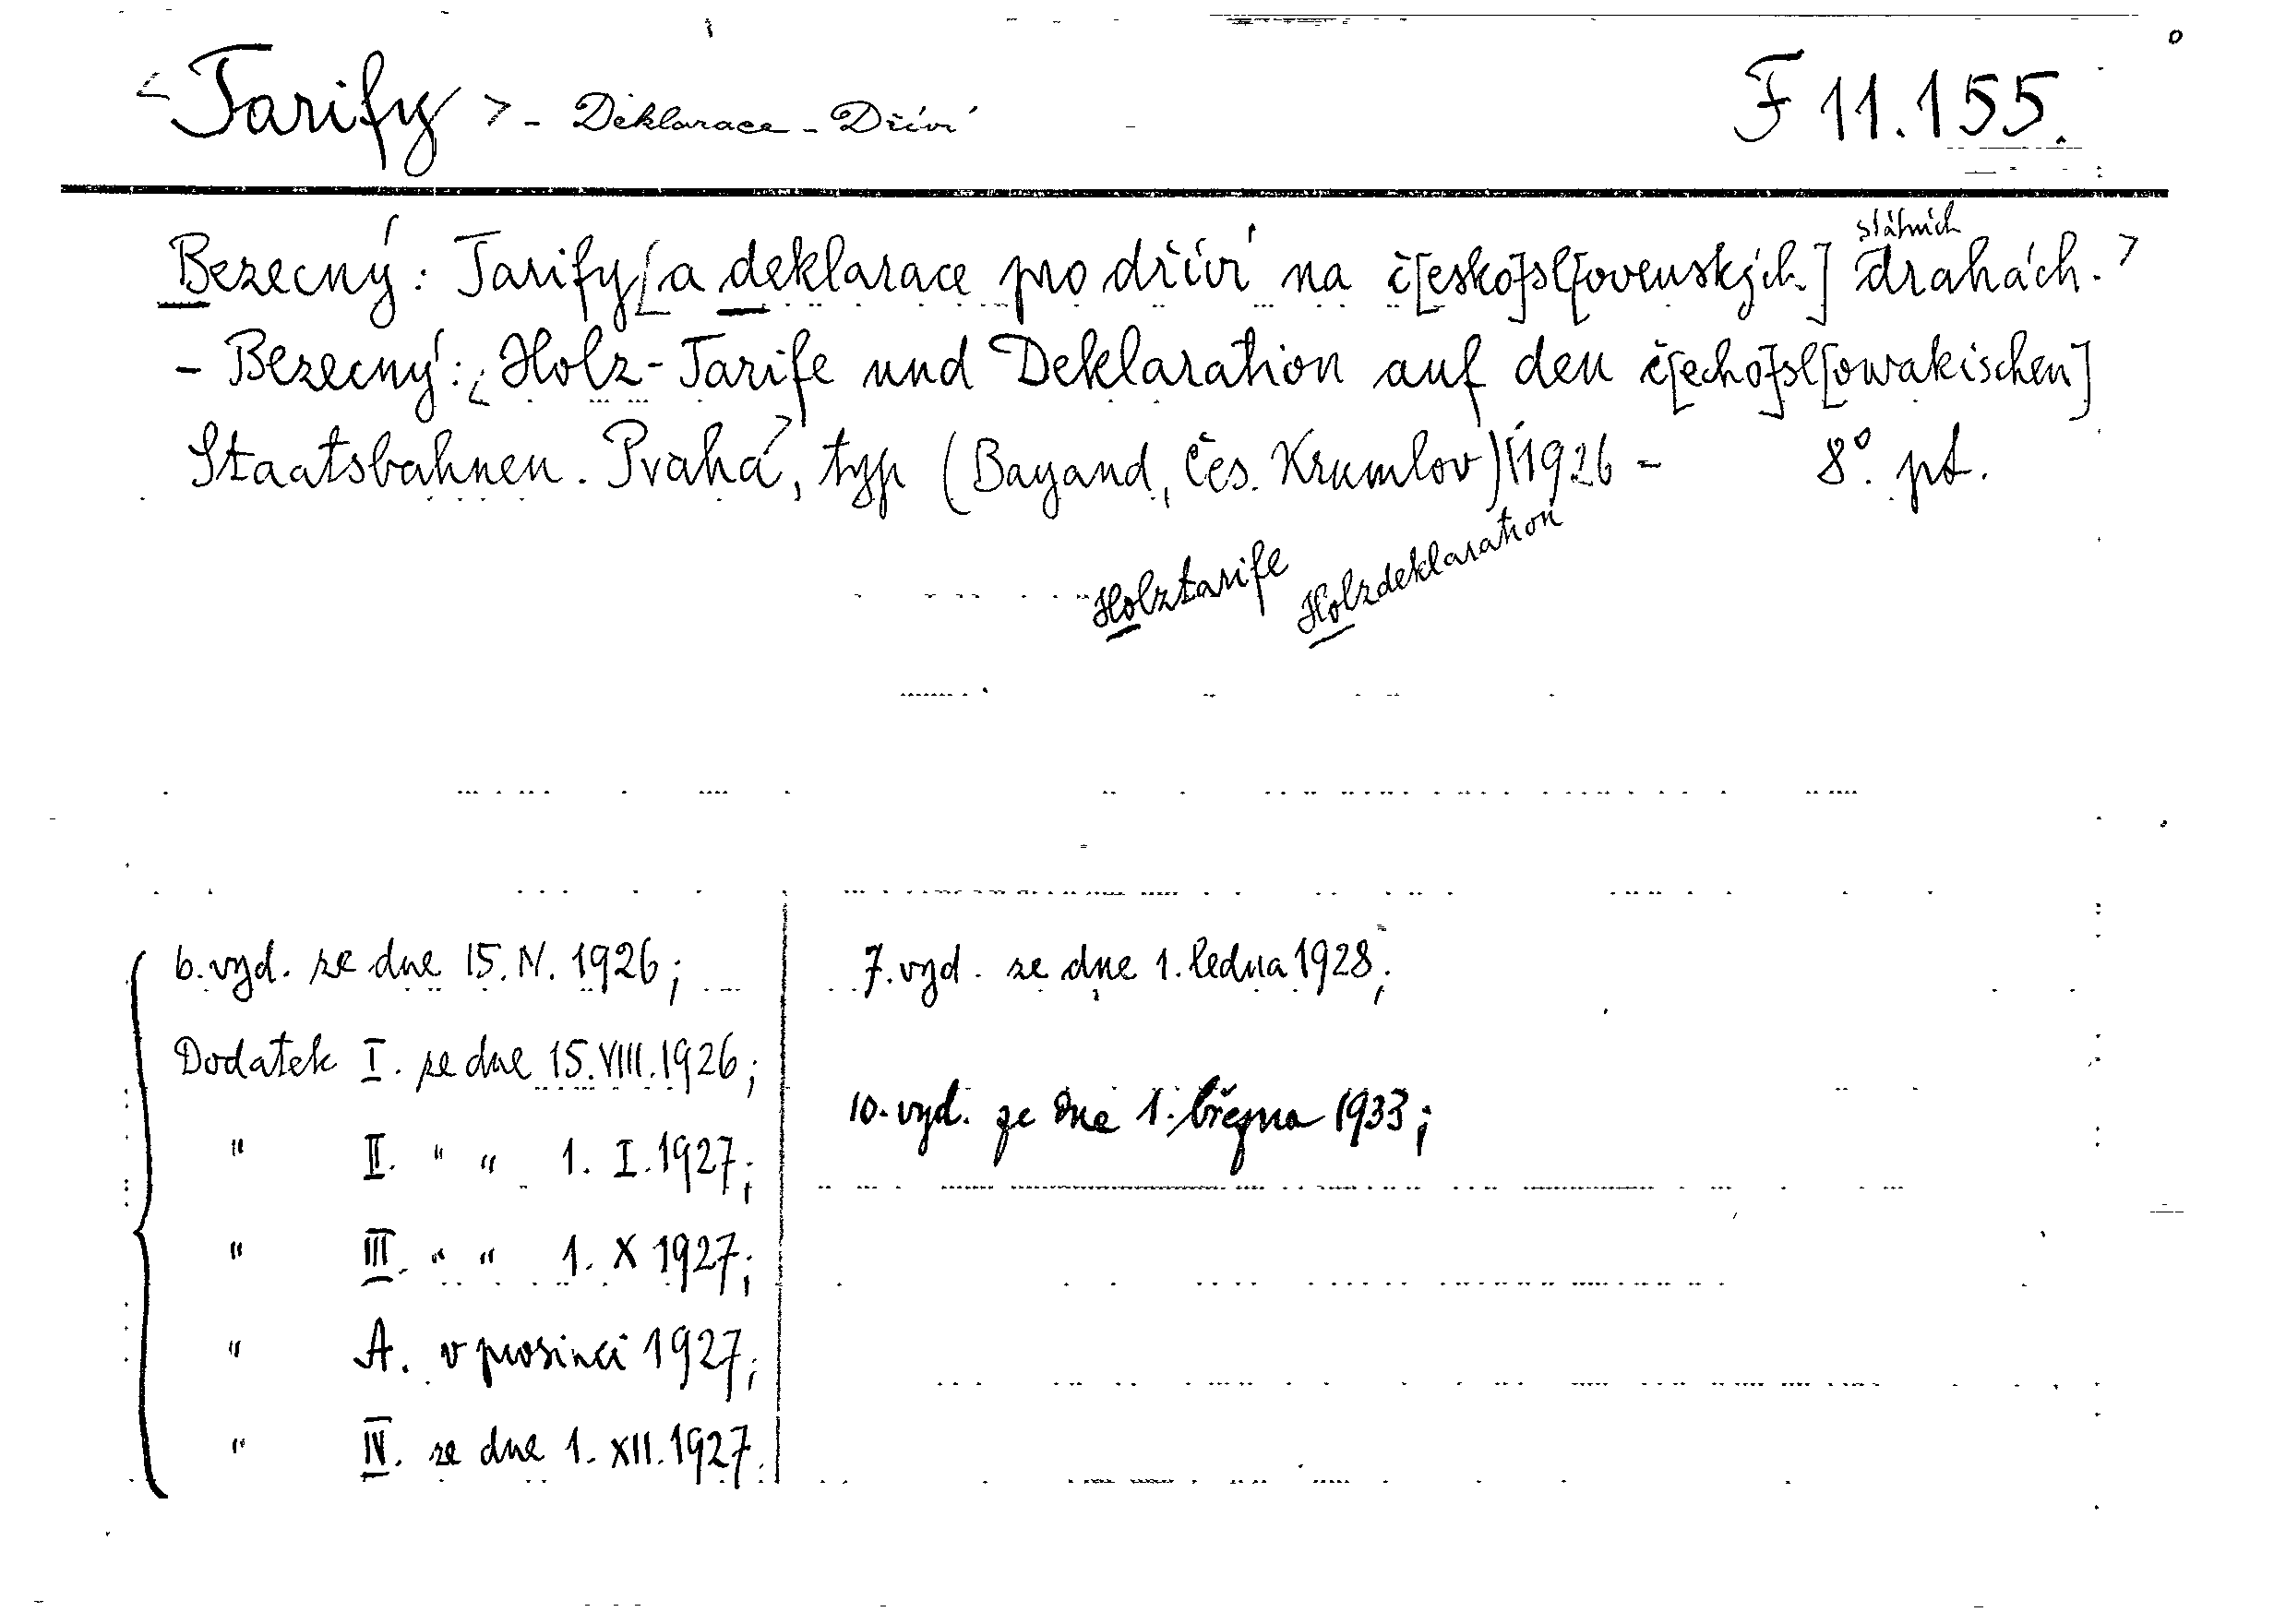 < Tarify > - Deklarace - Dříví
F 11.155.
Bezecný: Tarify [a deklarace pro dříví na č[esko]sl[ovenských] státních drahách. >
- Bezecný: < Holz-Tarife und Deklaration auf den č[echo]sl[owakischen]
Staatsbahnen. > Praha, typ (Bayand, Čes. Krumlov) 1926 - 8° pt.
Holztarife Holzdeklaration
6. vyd. ze dne 15. IV. 1926;
Dodatek I. ze dne 15. VIII. 1926;
" II. " " 1. I. 1927;
" III. " " 1. X 1927;
" A. v prosinci 1927;
" IV. ze dne 1. XII. 1927.
7. vyd. ze dne 1. ledna 1928;
10. vyd. ze dne 1. března 1933;